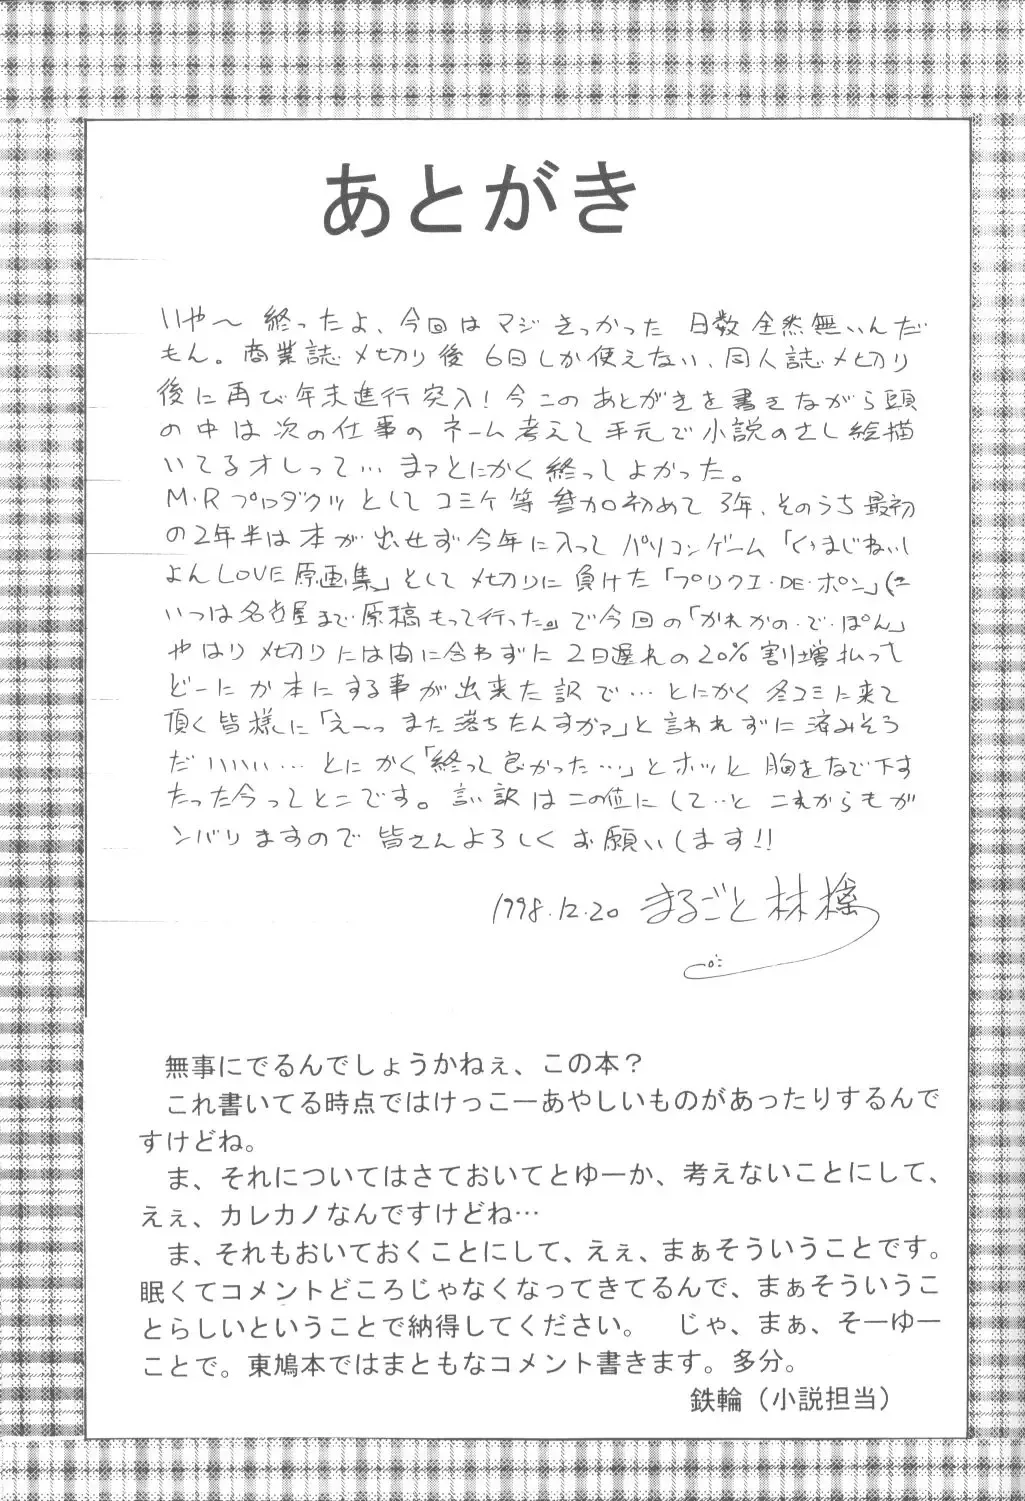 あとがき
いや〜 終ったよ、今回は マジ きっかった 日数 全然無いんだ
もん。商業誌〆切り後 6日しか使えない、同人誌〆切り
後に再び年末進行突入！今このあとがきを書きながら頭
の中は次の仕事のネーム考えて手元で小説のさし絵描
いてるオレって… まァとにかく終ってよかった。
M・Rプロダクツとしてコミケ等参加初めて3年、そのうち最初
の2年半は本が出せず今年に入ってパソコンゲーム「くりまじねいし
よんLOVE原画集」として〆切りに負けた「プリクエ・DE・ポン」(こ
いつは名古屋まで原稿もって行った。)で今回の「かれかの・で・ぽん」
やはり〆切りには間に合わずに2日遅れの20%割増払って
どーにか本にする事が出来た訳で… とにかく冬コミに来て
頂く皆様に「え〜っまた落ちたんすかァ」と言われずに済みそう
だいいいい… とにかく「終って良かった…」とホッと胸をなで下す
たった今ってとこです。言い訳はこの位にして…と これからもガ
ンバリますので皆さんよろしくお願いします!!
1998.12.20 まるごと林檎
無事にでるんでしょうかねぇ、この本？
これ書いてる時点ではけっこーあやしいものがあったりするんで
すけどね。
ま、それについてはさておいてとゆーか、考えないことにして、
えぇ、カレカノなんですけどね…
ま、それもおいておくことにして、えぇ、まぁそういうことです。
眠くてコメントどころじゃなくなってきてるんで、まぁそういうこ
とらしいということで納得してください。　じゃ、まぁ、そーゆー
ことで。東鳩本ではまともなコメント書きます。多分。
鉄輪（小説担当）